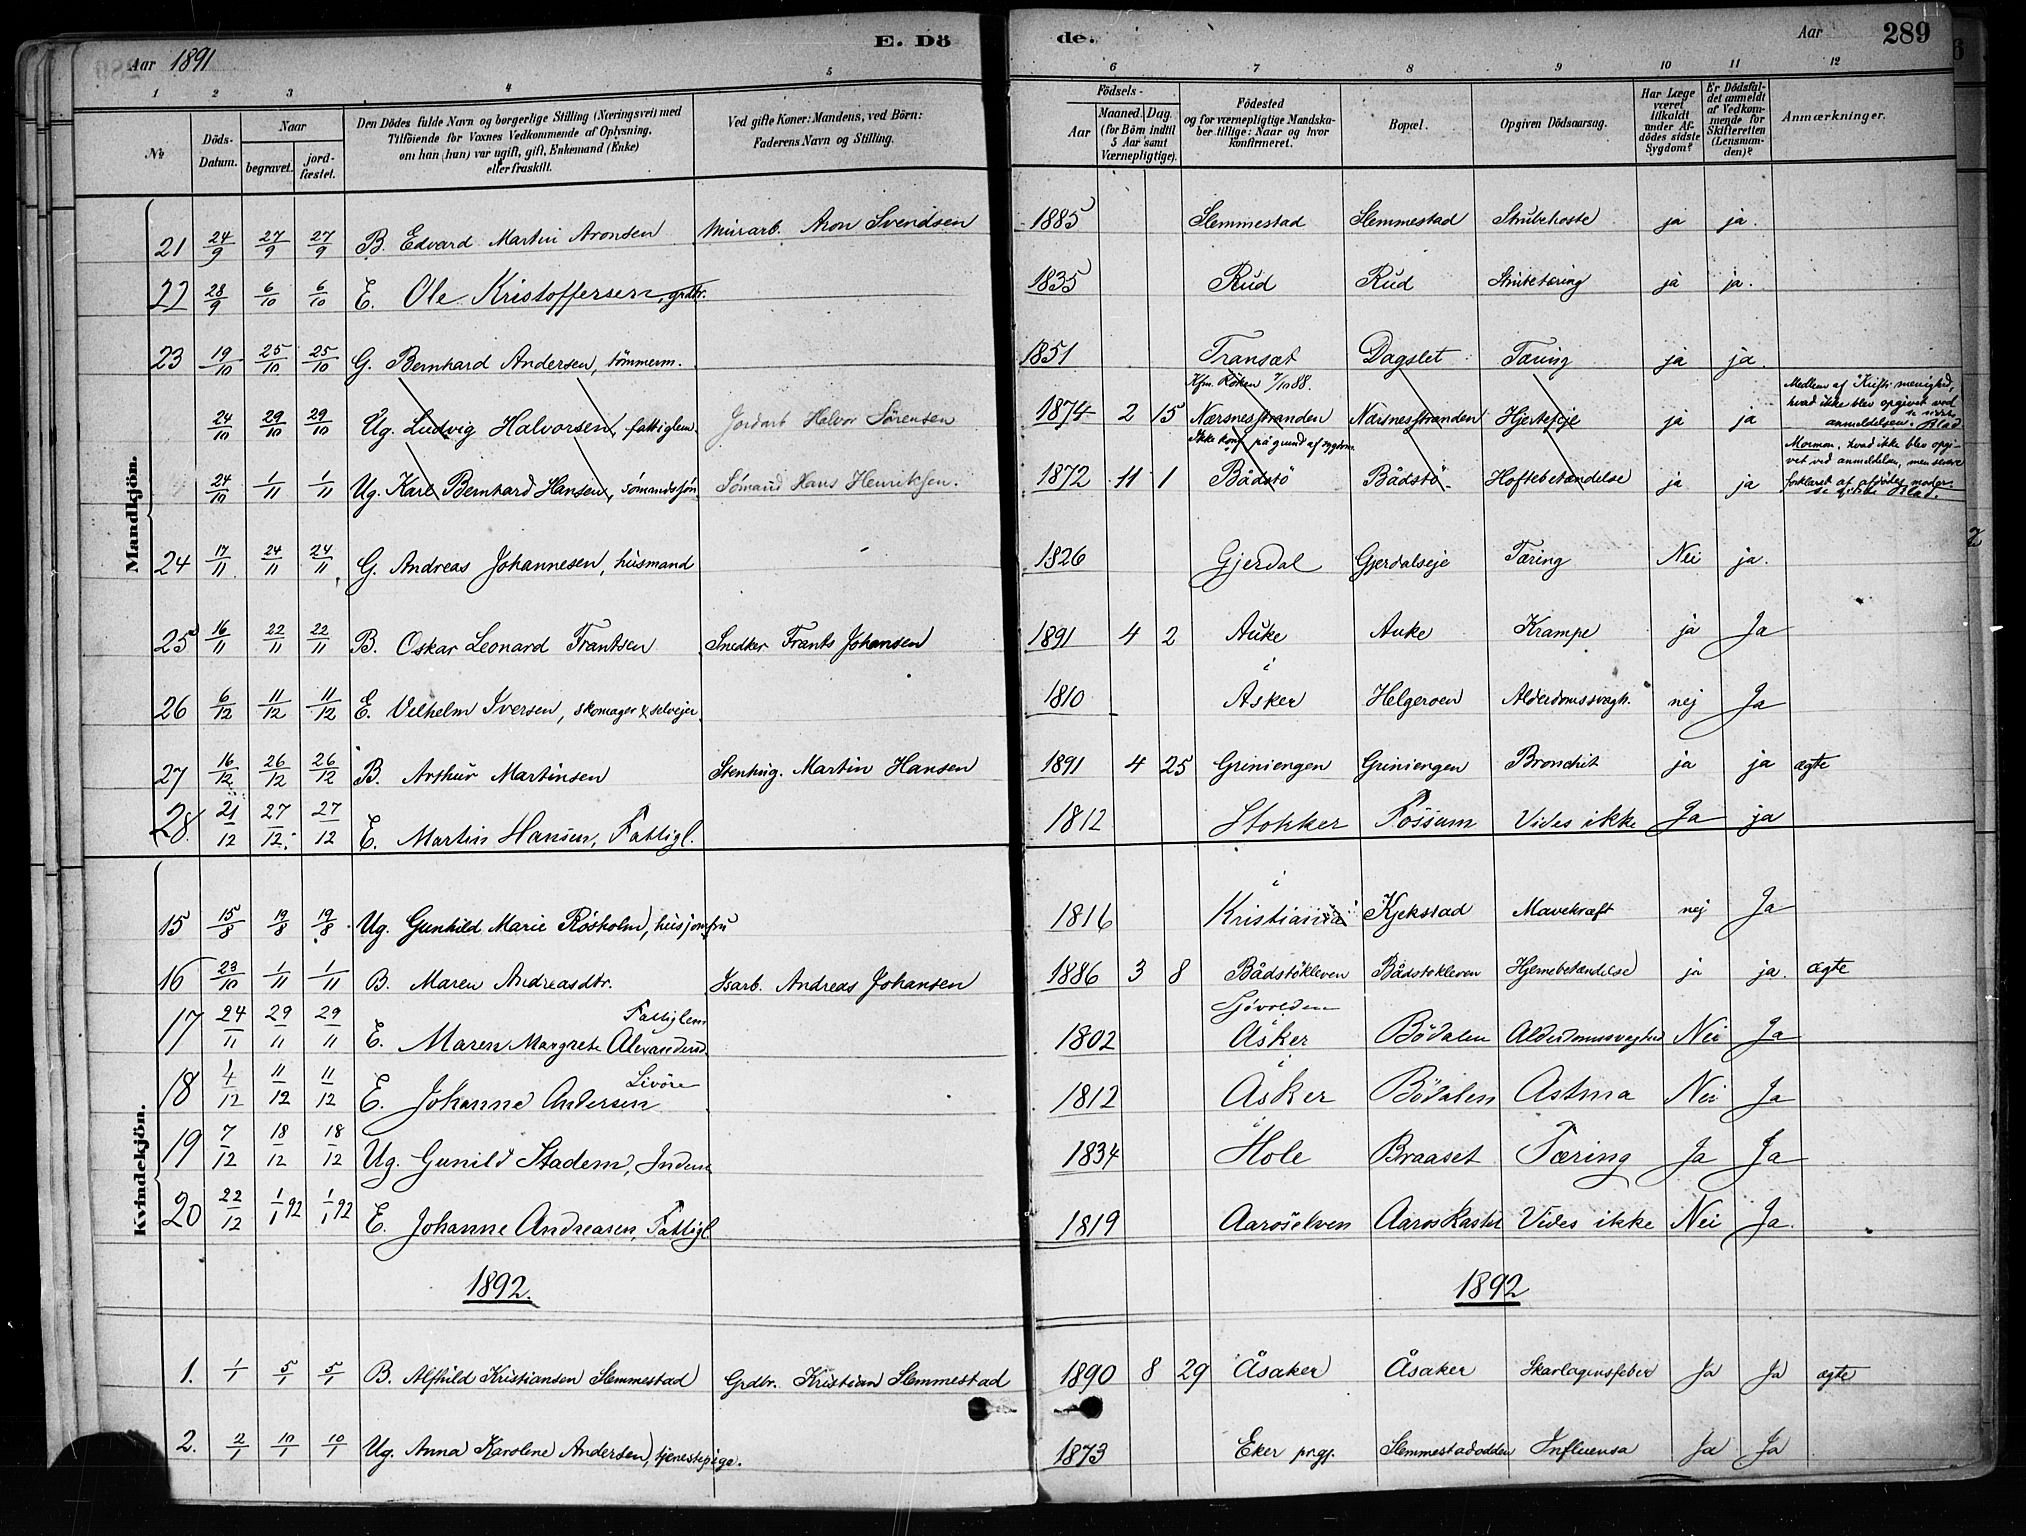 Aar 1891 E. Dö de. Aar 289
1 2 3 4 5 6 7 8 9 10 11 12
No. Döds-Datum. Naar begravet. jord-fæstet. Den Dödes fulde Navn og borgerlige Stilling (Næringsvei) med Tilföiende for Voxnes Vedkommende af Oplysning, om han (hun) var ugift, gift, Enkemand (Enke) eller fraskilt. Ved gifte Koner: Mandens, ved Börn: Faderens Navn og Stilling. Födsels- Aar Maaned. Dag. (for Börn indtil 5 Aar samt Værnepligtige). Födested og for værnepligtige Mandskaber tillige: Naar og hvor konfirmeret. Bopæl. Opgiven Dödsaarsag. Har Læge været tilkaldt under Afdödes sidste Sygdom? Er Dödsfaldet anmeldt af Vedkommende for Skifteretten (Lensmanden)? Anmærkninger.
Mandkjön.
21 24/9 27/9 27/9 B. Edvard Martin Aronsen Murarb. Aron Svendsen 1885 Slemmestad Slemmestad Strubehoste ja ja.
22 28/9 6/10 6/10 E. Ole Kristoffersen, grdbr. 1835 Rud Rud Strubetæring ja ja.
23 19/10 25/10 25/10 G. Bernhard Andersen, tömmerm. 1851 Transæt Dagslet Tæring ja ja.
Kfm. Röken 7/10 88.
24/10 29/10 29/10 Ug. Ludvig Halvorsen, fattiglem Jordarb Halvor Sörensen 1874 2 15 Nærsnesstranden Nærsnesstranden Hjertefeje ja ja Medlem af Kristi menighed, hvad ikke blev opgivet ved anmeldelsen. Blad
Ikke konf. på grund af sygdom.
24/10 1/11 1/11 Ug. Karl Bernhard Hansen, sömandssön Sömand Hans Henriksen. 1872 11 1 Bådstö Bådstö Hoftebetændelse ja ja Mormon, hvad ikke blev opgivet ved anmeldelsen, men senere forklaret af afdödes moder. Blad.
24 17/11 24/11 24/11 G. Andreas Johannesen, husmand 1826 Gjerdal Gjerdalseje Tæring Nei ja.
25 16/11 22/11 22/11 B. Oskar Leonard Frantsen Snedker Frants Johansen 1891 4 2 Auke Auke Krampe ja Ja
26 6/12 11/12 11/12 E. Vilhelm Iversen, skomager & selvejer 1810 i Asker Helgeroen Alderdomssvagh. nej Ja
27 16/12 26/12 26/12 B. Arthur Martinsen Stenhug. Martin Hansen 1891 4 25 Griniengen Griniengen Bronchit ja ja ægte
28. 21/12 27/12 27/12 E. Martin Hansen, Fattigl. 1812 Stokker Fossum Vides ikke Ja ja
Kvindekjön.
15 15/8 19/8 19/8 Ug. Gunhild Marie Rösholm, husjomfru 1816 i Kristiania Kjekstad Mavekræft nej Ja
16 23/10 1/11 1/11 B. Maren Andreasdtr. Isarb. Andreas Johansen 1886 3 8 Bådstökleven Bådstökleven Hjernebetændelse ja ja. ægte
17 24/11 29/11 29/11 E. Maren Margrete Alexandersd. Fattiglem 1802 Sjövolden i Asker Bödalen Alderdomssvaghed Nei Ja
18 4/12 11/12 11/12 E. Johanne Andersen Livöre 1812 i Asker Bödalen Astma Nei Ja
19 7/12 18/12 18/12 Ug. Gunild Stadem, Inderst 1834 Hole Braaset Tæring Ja Ja
20 22/12 1/1 92 1/1 92 E. Johanne Andreasen, Fattigl. 1819 Aaroselven Aaroskastet Vides ikke Nei Ja.
1892. 1892
1. 1/1 5/1 5/1 B. Alfhild Kristiansen Slemmestad Grdbr. Kristian Slemmestad 1890 8 29 Åsaker Åsaker Skarlagensfeber Ja Ja ægte
2. 2/1 10/1 10/1 Ug. Anna Karoline Andersen, tjenestepige. 1873 Eker prgj. Slemmestadodden Influensa Ja Ja